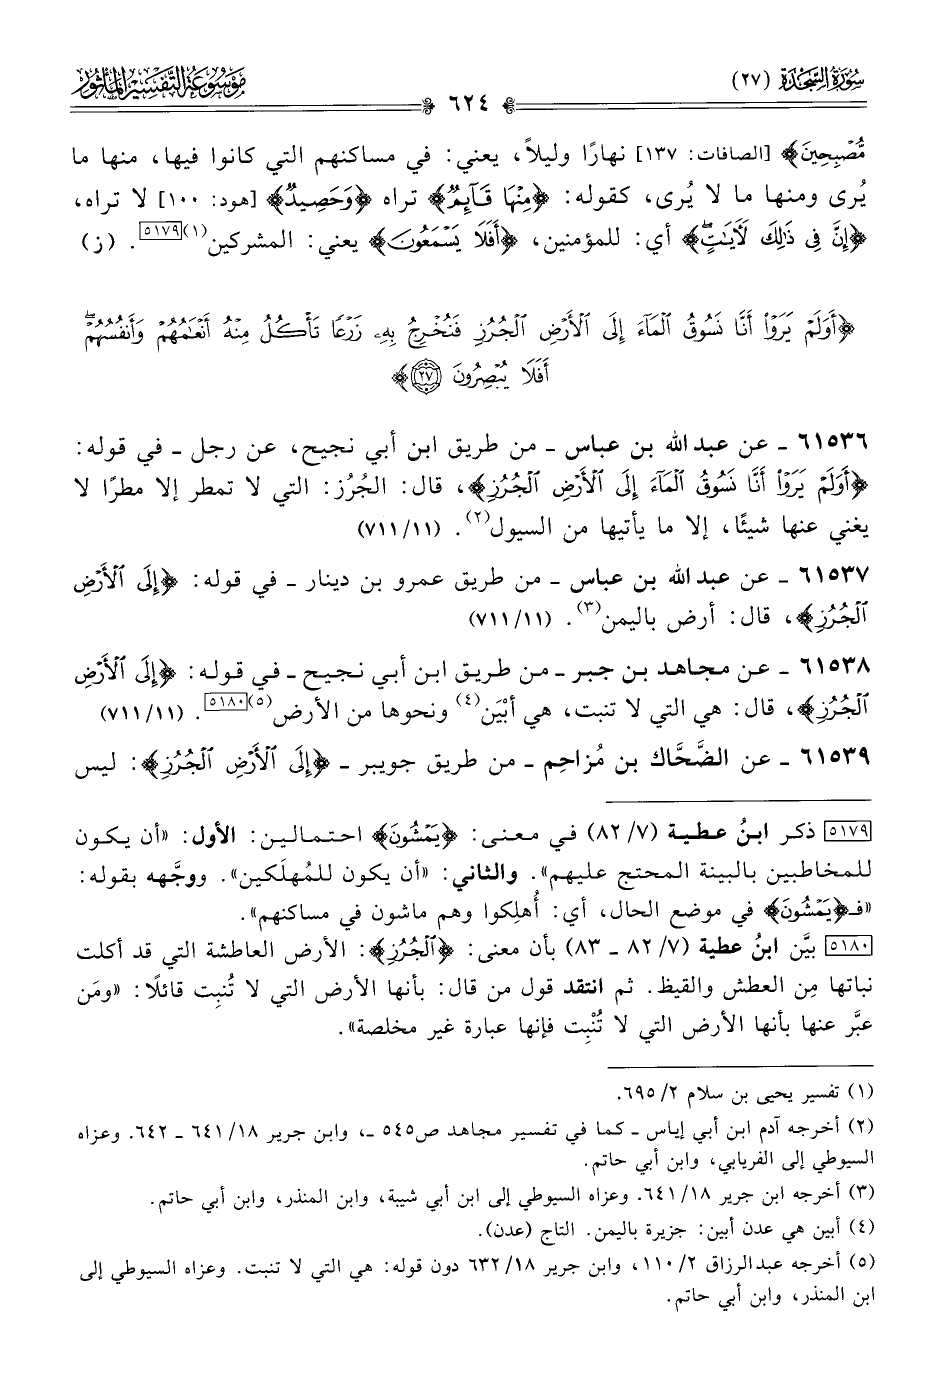 سُورَةُ السَّجْدَةِ (٢٧)
٦٢٤
مَوْسُوعَةُ التَّفْسِيرِ المَأْثُورِ
مُّصْبِحِينَ﴾ [الصافات: ١٣٧] نهارًا وليلاً، يعني: في مساكنهم التي كانوا فيها، منها ما
يُرى ومنها ما لا يُرى، كقوله: ﴿مِنْهَا قَآئِمٌ﴾ تراه ﴿وَحَصِيدٌ﴾ [هود: ١٠٠] لا تراه،
﴿إِنَّ فِى ذَٰلِكَ لَأٓيَٰتٍۖ﴾ أي: للمؤمنين، ﴿أَفَلَا يَسْمَعُونَ﴾ يعني: المشركين(١) ٥١٧٩. (ز)
﴿أَوَلَمْ يَرَوْا۟ أَنَّا نَسُوقُ ٱلْمَآءَ إِلَى ٱلْأَرْضِ ٱلْجُرُزِ فَنُخْرِجُ بِهِۦ زَرْعًا تَأْكُلُ مِنْهُ أَنْعَٰمُهُمْ وَأَنفُسُهُمْۖ
أَفَلَا يُبْصِرُونَ ٢٧﴾
٦١٥٣٦ ـ عن عبد الله بن عباس ـ من طريق ابن أبي نجيح، عن رجل ـ في قوله:
﴿أَوَلَمْ يَرَوْا۟ أَنَّا نَسُوقُ ٱلْمَآءَ إِلَى ٱلْأَرْضِ ٱلْجُرُزِ﴾، قال: الجُرُز: التي لا تمطر إلا مطرًا لا
يغني عنها شيئًا، إلا ما يأتيها من السيول(٢). (٧١١/١١)
٦١٥٣٧ ـ عن عبد الله بن عباس ـ من طريق عمرو بن دينار ـ في قوله: ﴿إِلَى ٱلْأَرْضِ
ٱلْجُرُزِ﴾، قال: أرض باليمن(٣). (٧١١/١١)
٦١٥٣٨ ـ عن مجاهد بن جبر ـ من طريق ابن أبي نجيح ـ في قوله: ﴿إِلَى ٱلْأَرْضِ
ٱلْجُرُزِ﴾، قال: هي التي لا تنبت، هي أَبْيَن(٤) ونحوها من الأرض(٥) ٥١٨٠. (٧١١/١١)
٦١٥٣٩ ـ عن الضَّحَّاك بن مُزاحِم ـ من طريق جويبر ـ ﴿إِلَى ٱلْأَرْضِ ٱلْجُرُزِ﴾: ليس
٥١٧٩ ذكر ابنُ عطية (٧/ ٨٢) في معنى: ﴿يَمْشُونَ﴾ احتمالين: الأول: «أن يكون
للمخاطبين بالبينة المحتج عليهم». والثاني: «أن يكون للمُهلَكين». ووجَّهه بقوله:
«فـ﴿يَمْشُونَ﴾ في موضع الحال، أي: أُهلِكوا وهم ماشون في مساكنهم».
٥١٨٠ بيَّن ابنُ عطية (٧/ ٨٢ ـ ٨٣) بأن معنى: ﴿ٱلْجُرُزِ﴾: الأرض العاطشة التي قد أكلت
نباتها مِن العطش والقيظ. ثم انتقد قول من قال: بأنها الأرض التي لا تُنبِت قائلًا: «ومَن
عبَّر عنها بأنها الأرض التي لا تُنْبِت فإنها عبارة غير مخلصة».
(١) تفسير يحيى بن سلام ٢/ ٦٩٥.
(٢) أخرجه آدم ابن أبي إياس ـ كما في تفسير مجاهد ص٥٤٥ ـ، وابن جرير ١٨/ ٦٤١ ـ ٦٤٢. وعزاه
السيوطي إلى الفريابي، وابن أبي حاتم.
(٣) أخرجه ابن جرير ١٨/ ٦٤١. وعزاه السيوطي إلى ابن أبي شيبة، وابن المنذر، وابن أبي حاتم.
(٤) أبين هي عدن أبين: جزيرة باليمن. التاج (عدن).
(٥) أخرجه عبدالرزاق ٢/ ١١٠، وابن جرير ١٨/ ٦٣٢ دون قوله: هي التي لا تنبت. وعزاه السيوطي إلى
ابن المنذر، وابن أبي حاتم.